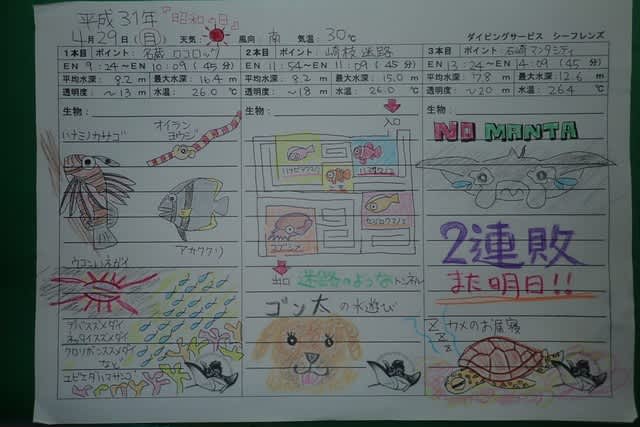 平成31年『昭和の日』
4月29日(月) 天気: 風向: 南 気温: 30℃ ダイビングサービス シーフレンズ
1本目 ポイント: 名蔵 ロコロック
EN 9:24〜EN 10:09 (45分)
平均水深: 8.2 m 最大水深: 16.4 m
透明度: 〜13 m 水温: 26.0 ℃
生物:
ハナミノカサゴ
オイラン
ヨウジ
アカククリ
ウコンハネガイ
デバスズメダイ
クロリボンスズメダイ
など
エビエダハマサンゴ
2本目 ポイント: 崎枝 迷路
EN 11:54〜EN 11:09 (45分)
平均水深: 8.2 m 最大水深: 15.0 m
透明度: 〜18 m 水温: 26.0 ℃
生物:
入口
出口 迷路のような トンネル
ゴン太の水遊び
3本目 ポイント: 石崎 マンタシティ
EN 13:24〜EN 14:09 (45分)
平均水深: 7.8 m 最大水深: 12.6 m
透明度: 〜20 m 水温: 26.4 ℃
生物:
NO MANTA
2連敗
また明日!!
Z Z Z カメのお昼寝